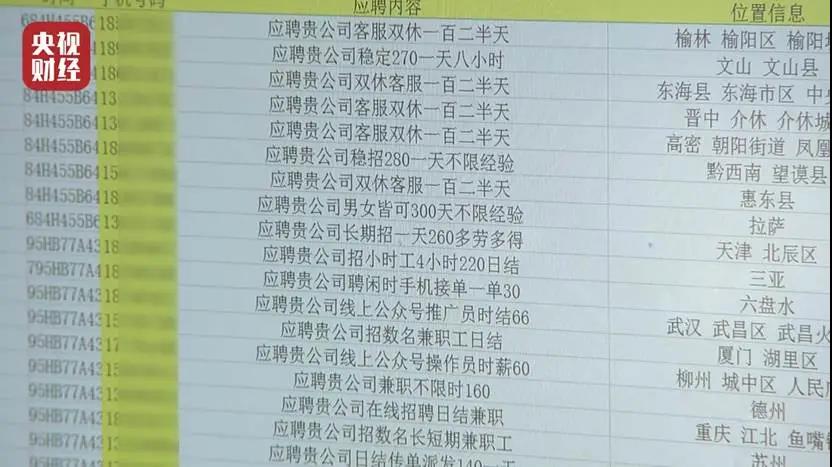 央视财经
手机号码 应聘内容 位置信息
684H455B6418 应聘贵公司客服双休一百二半天 榆林 榆阳区 榆阳
189 应聘贵公司稳定270一天八小时 文山 文山县
84H455B64 应聘贵公司双休客服一百二半天 东海县 东海市区
84H455B64 应聘贵公司客服双休一百二半天 晋中 介休 介休城
84H455B64 应聘贵公司客服双休一百二半天 高密 朝阳街道 凤凰
84H455B64 应聘贵公司稳招280一天不限经验 黔西南 望谟县
84H455B64 应聘贵公司双休客服一百二半天 惠东县
84H455B64 应聘贵公司男女皆可300天不限经验 拉萨
684H455B6 13 应聘贵公司长期招一天260多劳多得 天津 北辰区
95HB77A43 应聘贵公司招小时工4小时220日结 三亚
795HB77A43 18 应聘贵公司聘闲时手机接单一单30 六盘水
95HB77A43 应聘贵公司线上公众号推广员时结66 武汉 武昌区 武昌火
95HB77A43 应聘贵公司招数名兼职工日结 厦门 湖里区
95HB77A43 应聘贵公司线上公众号操作员时薪60 柳州 城中区 人民
95HB77A43 应聘贵公司兼职不限时160 德州
95HB77A43 应聘贵公司在线招聘日结兼职 重庆 江北 鱼嘴
95HB77A43 应聘贵公司招数名长短期兼职工 苏州
应聘贵公司日结传单派发140一天